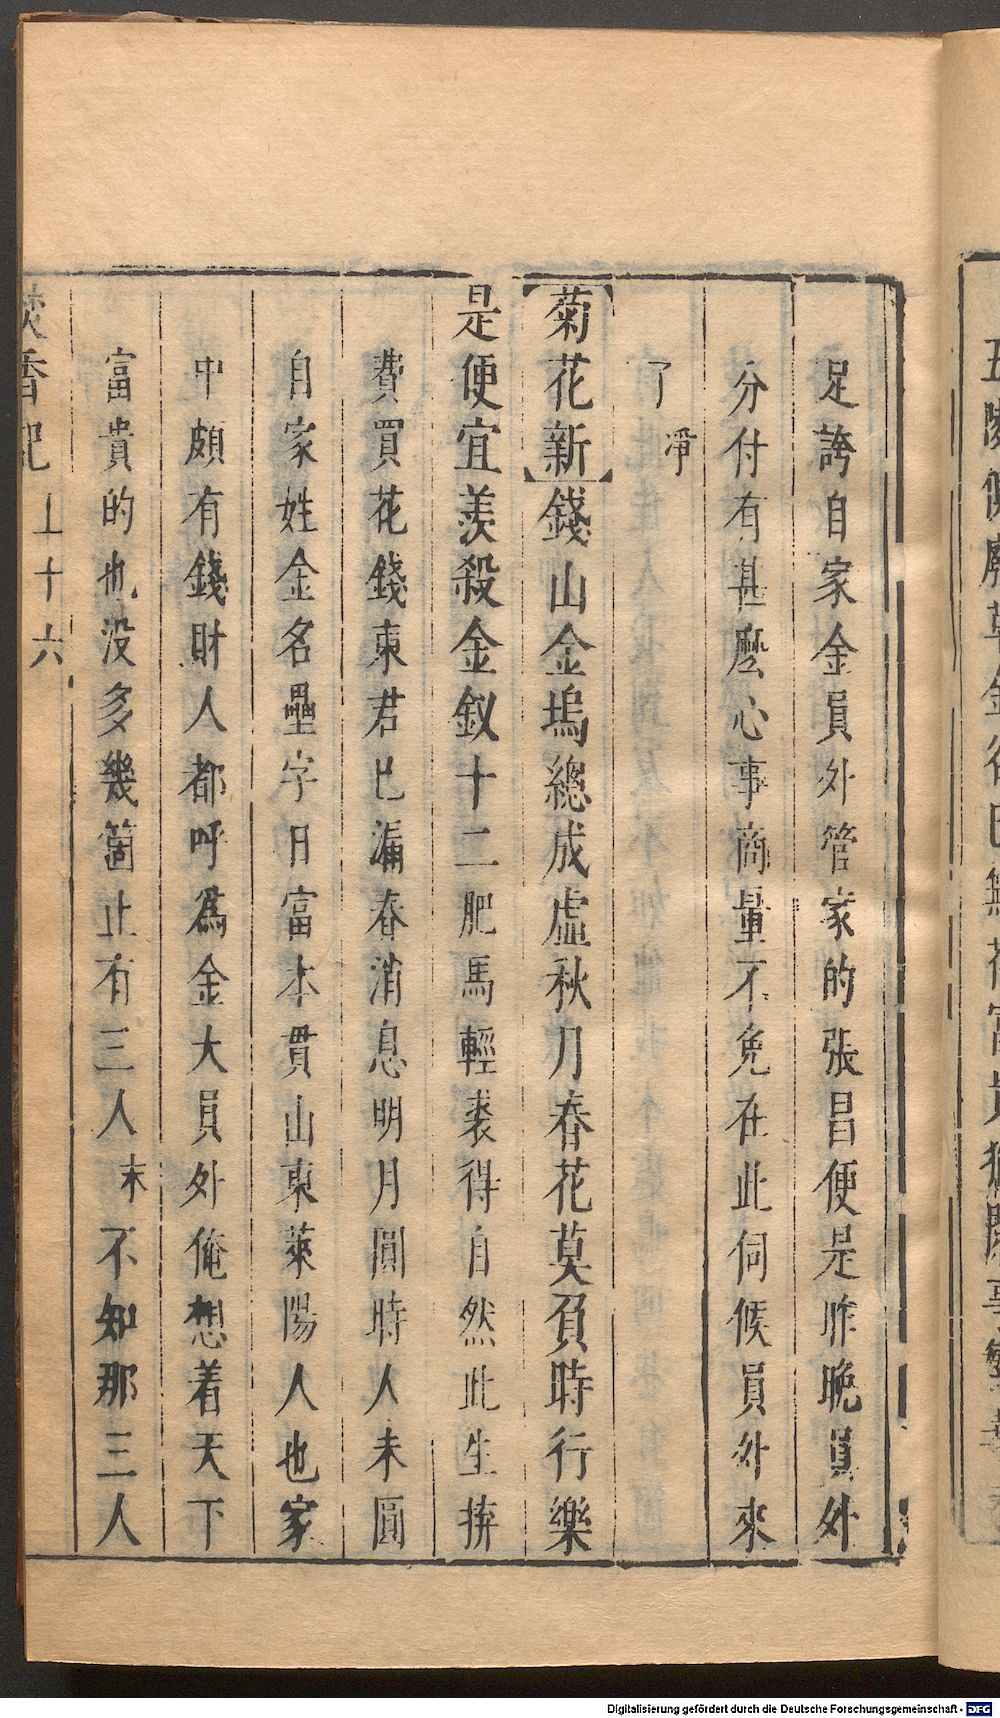 足誇自家金員外管家的張昌便是昨晚員外
分付有甚麽心事商量不免在此伺候員外來
了 淨
菊花新錢山金塢總成虛秋月春花莫負時行樂
是便宜羨殺金釵十二肥馬輕裘得自然此生拚
費買花錢東君已漏春消息明月圓時人未圓
自家姓金名壘字日富本貫山東萊陽人也家
中頗有錢財人都呼爲金大員外俺想着天下
富貴的也没多幾箇止有三人 末 不知那三人
焚香記 上 十六
Digitalisierung gefördert durch die Deutsche Forschungsgemeinschaft - DFG